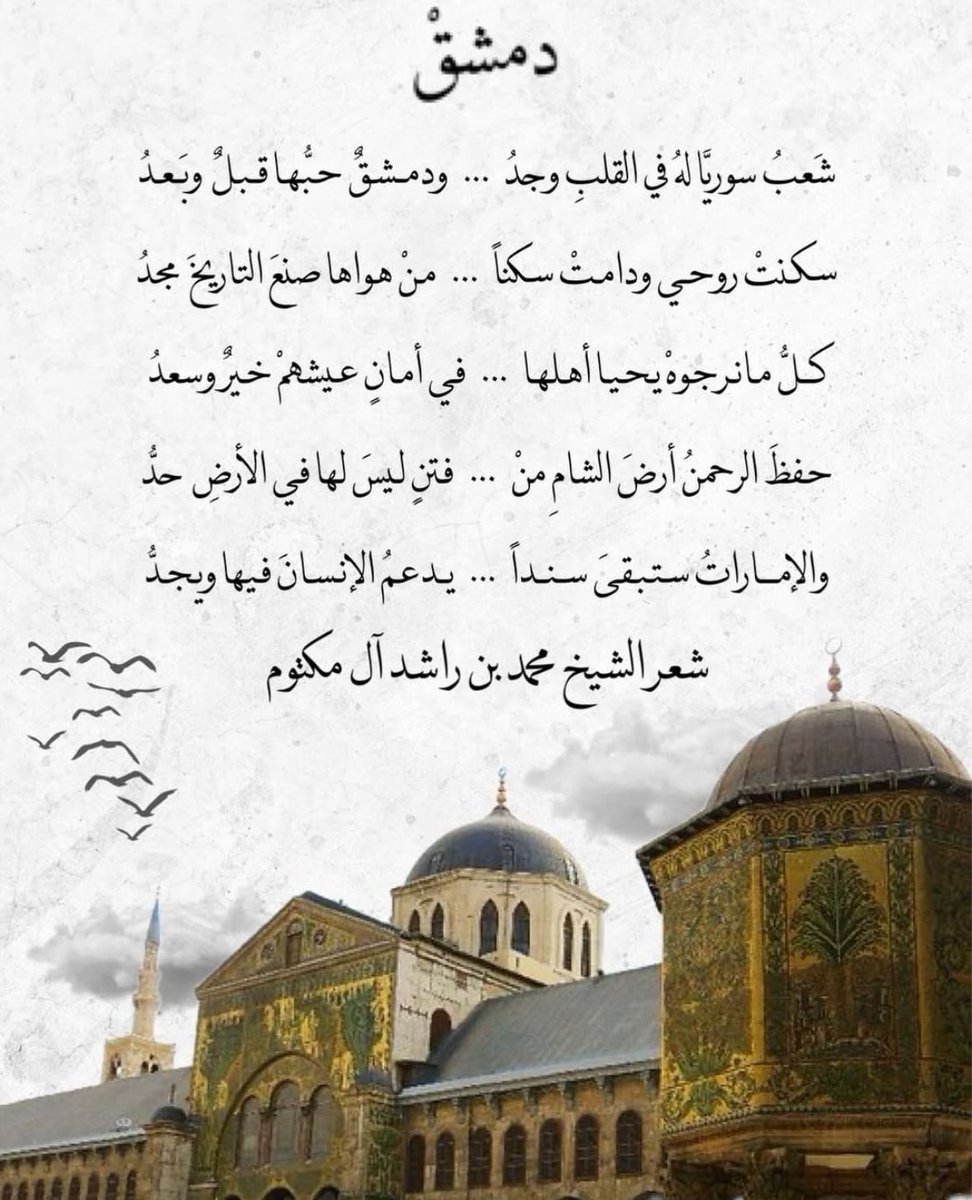 دمشقْ
شَعبُ سوريَّا لهُ في القلبِ وجدُ ... ودمشقٌ حبُّها قبلٌ وبَعدُ
سكنتْ روحي ودامتْ سكناً ... منْ هواها صنعَ التاريخَ مجدُ
كلُّ ما نرجوهْ يحيا أهلها ... في أمانٍ عيشهمْ خيرٌ وسعدُ
حفظَ الرحمنُ أرضَ الشامِ منْ ... فتنٍ ليسَ لها في الأرضِ حدُّ
والإماراتُ ستبقىَ سنداً ... يدعمُ الإنسانَ فيها ويجدُّ
شعر الشيخ محمد بن راشد آل مكتوم